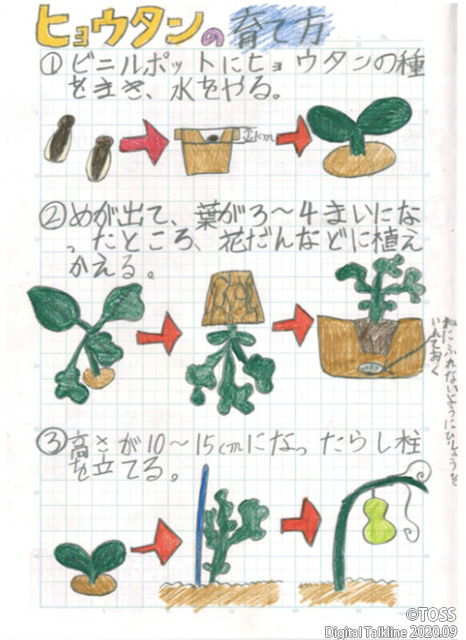 ヒョウタンの育て方
①ビニルポットにヒョウタンの種
をまき、水をやる。
1cm
②めが出て、葉が3〜4まいにな
ったところ、花だんなどに植え
かえる。
根にふれないようにひりょうを
いれておく
③高さが10〜15cmになったらし柱
を立てる。
©TOSS
Digital Talkline 2020.09